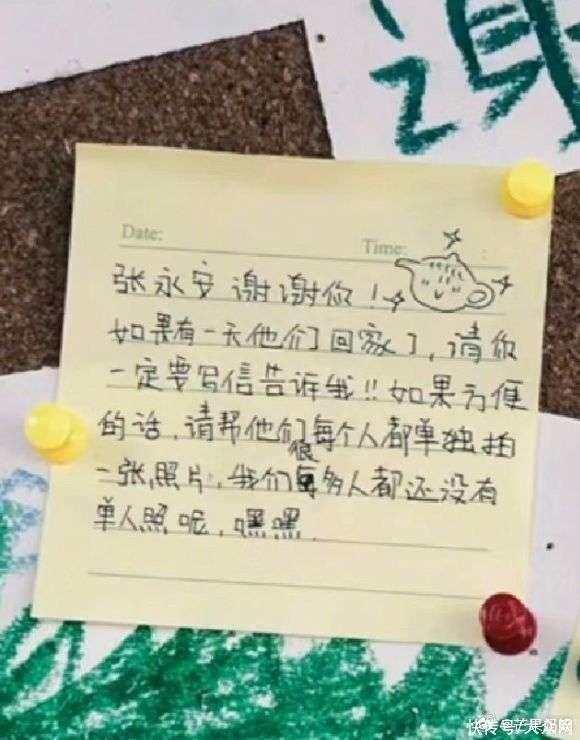 谢
Date:
Time:
张永安谢谢你！
如果有一天他们回家了，请你
一定要写信告诉我！！如果方便
的话，请帮他们每个人都单独拍
一张照片，我们很多人都还没有
单人照呢，嘿嘿.
快传号